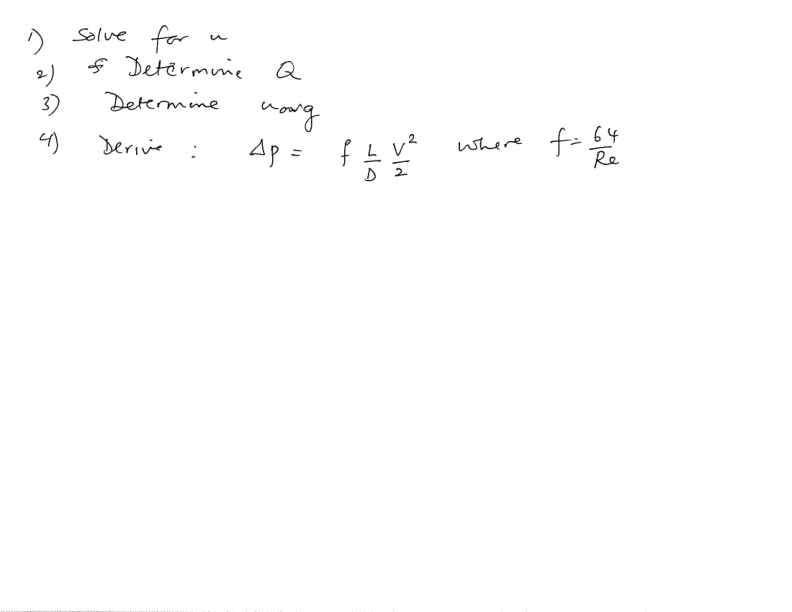 1) Solve for u
2) Determine Q
3) Determine uavg
4) Derive : Δp = f L/D V²/2 where f = 64/Re